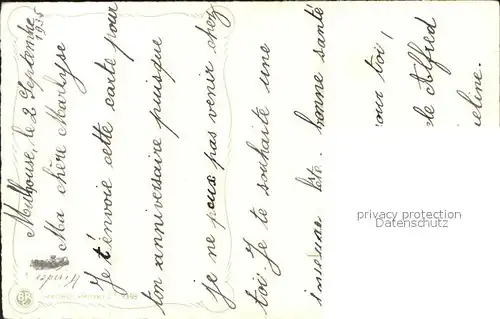 Mulhouse, le 2 Septembre
1935
Ma chère Marlyse
Je t'envoie cette carte pour
ton anniversaire puisque
je ne peux pas venir chez
toi. Je te souhaite une
bonne santé
our toi,
le Alfred
eline.
Kinder
privacy protection
www.ansichtskarten-center.de